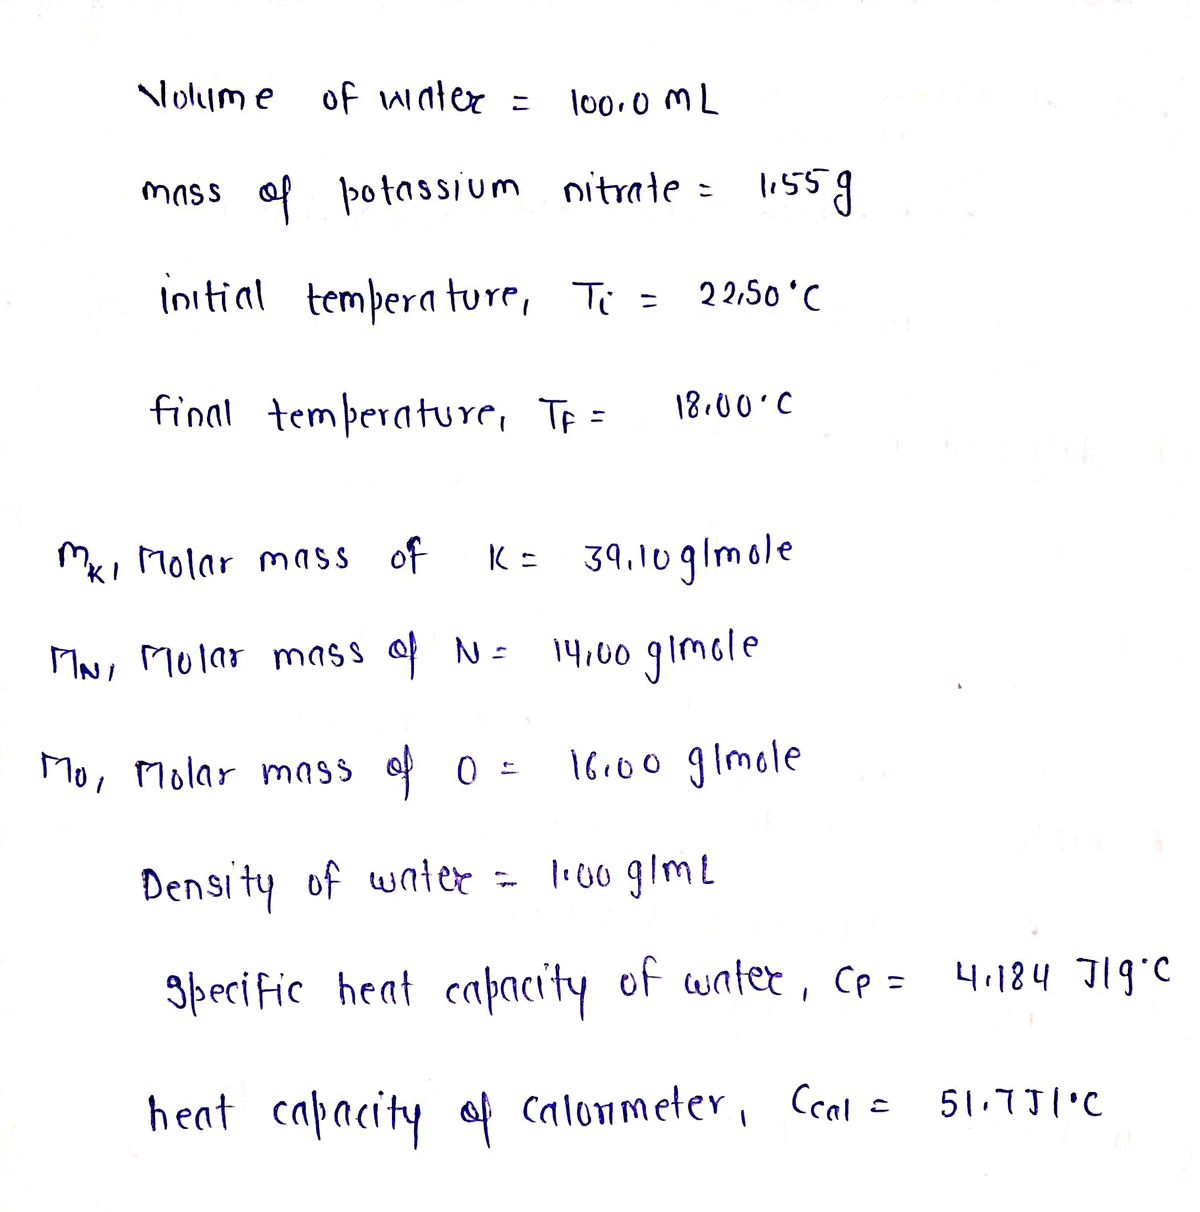 Volume of water = 100.0 mL
mass of potassium nitrate = 1.55 g
initial temperature, Ti = 22.50 °C
final temperature, TF = 18.00 °C
MK, Molar mass of K = 39.10 g/mole
MN, Molar mass of N = 14.00 g/mole
MO, Molar mass of O = 16.00 g/mole
Density of water = 1.00 g/mL
Specific heat capacity of water, CP = 4.184 J/g°C
heat capacity of calorimeter, Ccal = 51.7 J/°C